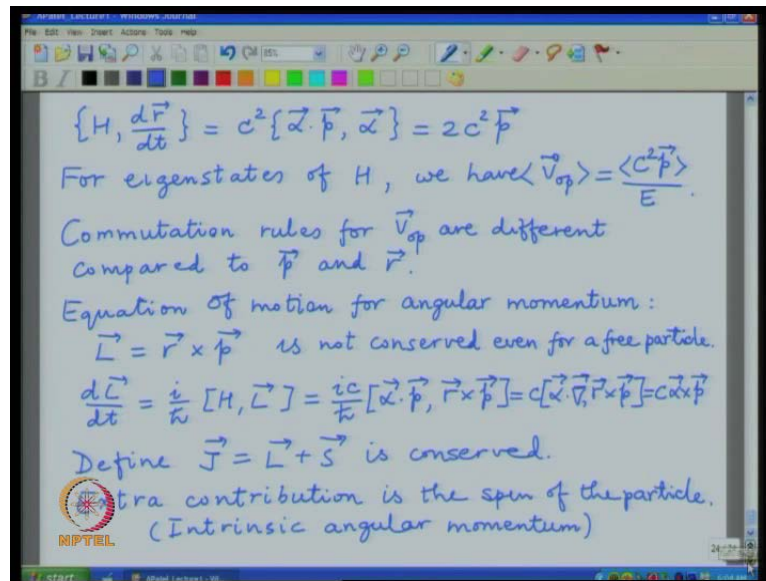 XPatel_Lecture1 - Windows Journal
File Edit View Insert Actions Tools Help
85%
B I
{H, d\vec{r}/dt} = c²{\vec{α}·\vec{p}, \vec{α}} = 2c²\vec{p}
For eigenstates of H, we have ⟨\vec{v}_{op}⟩ = ⟨c²\vec{p}⟩/E.
Commutation rules for \vec{v}_{op} are different
compared to \vec{p} and \vec{r}.
Equation of motion for angular momentum:
\vec{L} = \vec{r} × \vec{p} is not conserved even for a free particle.
d\vec{L}/dt = i/ħ [H, \vec{L}] = ic/ħ [\vec{α}·\vec{p}, \vec{r}×\vec{p}] = c[\vec{α}·\vec{∇}, \vec{r}×\vec{p}] = c\vec{α}×\vec{p}
Define \vec{J} = \vec{L} + \vec{S} is conserved.
Extra contribution is the spin of the particle.
(Intrinsic angular momentum)
NPTEL
start